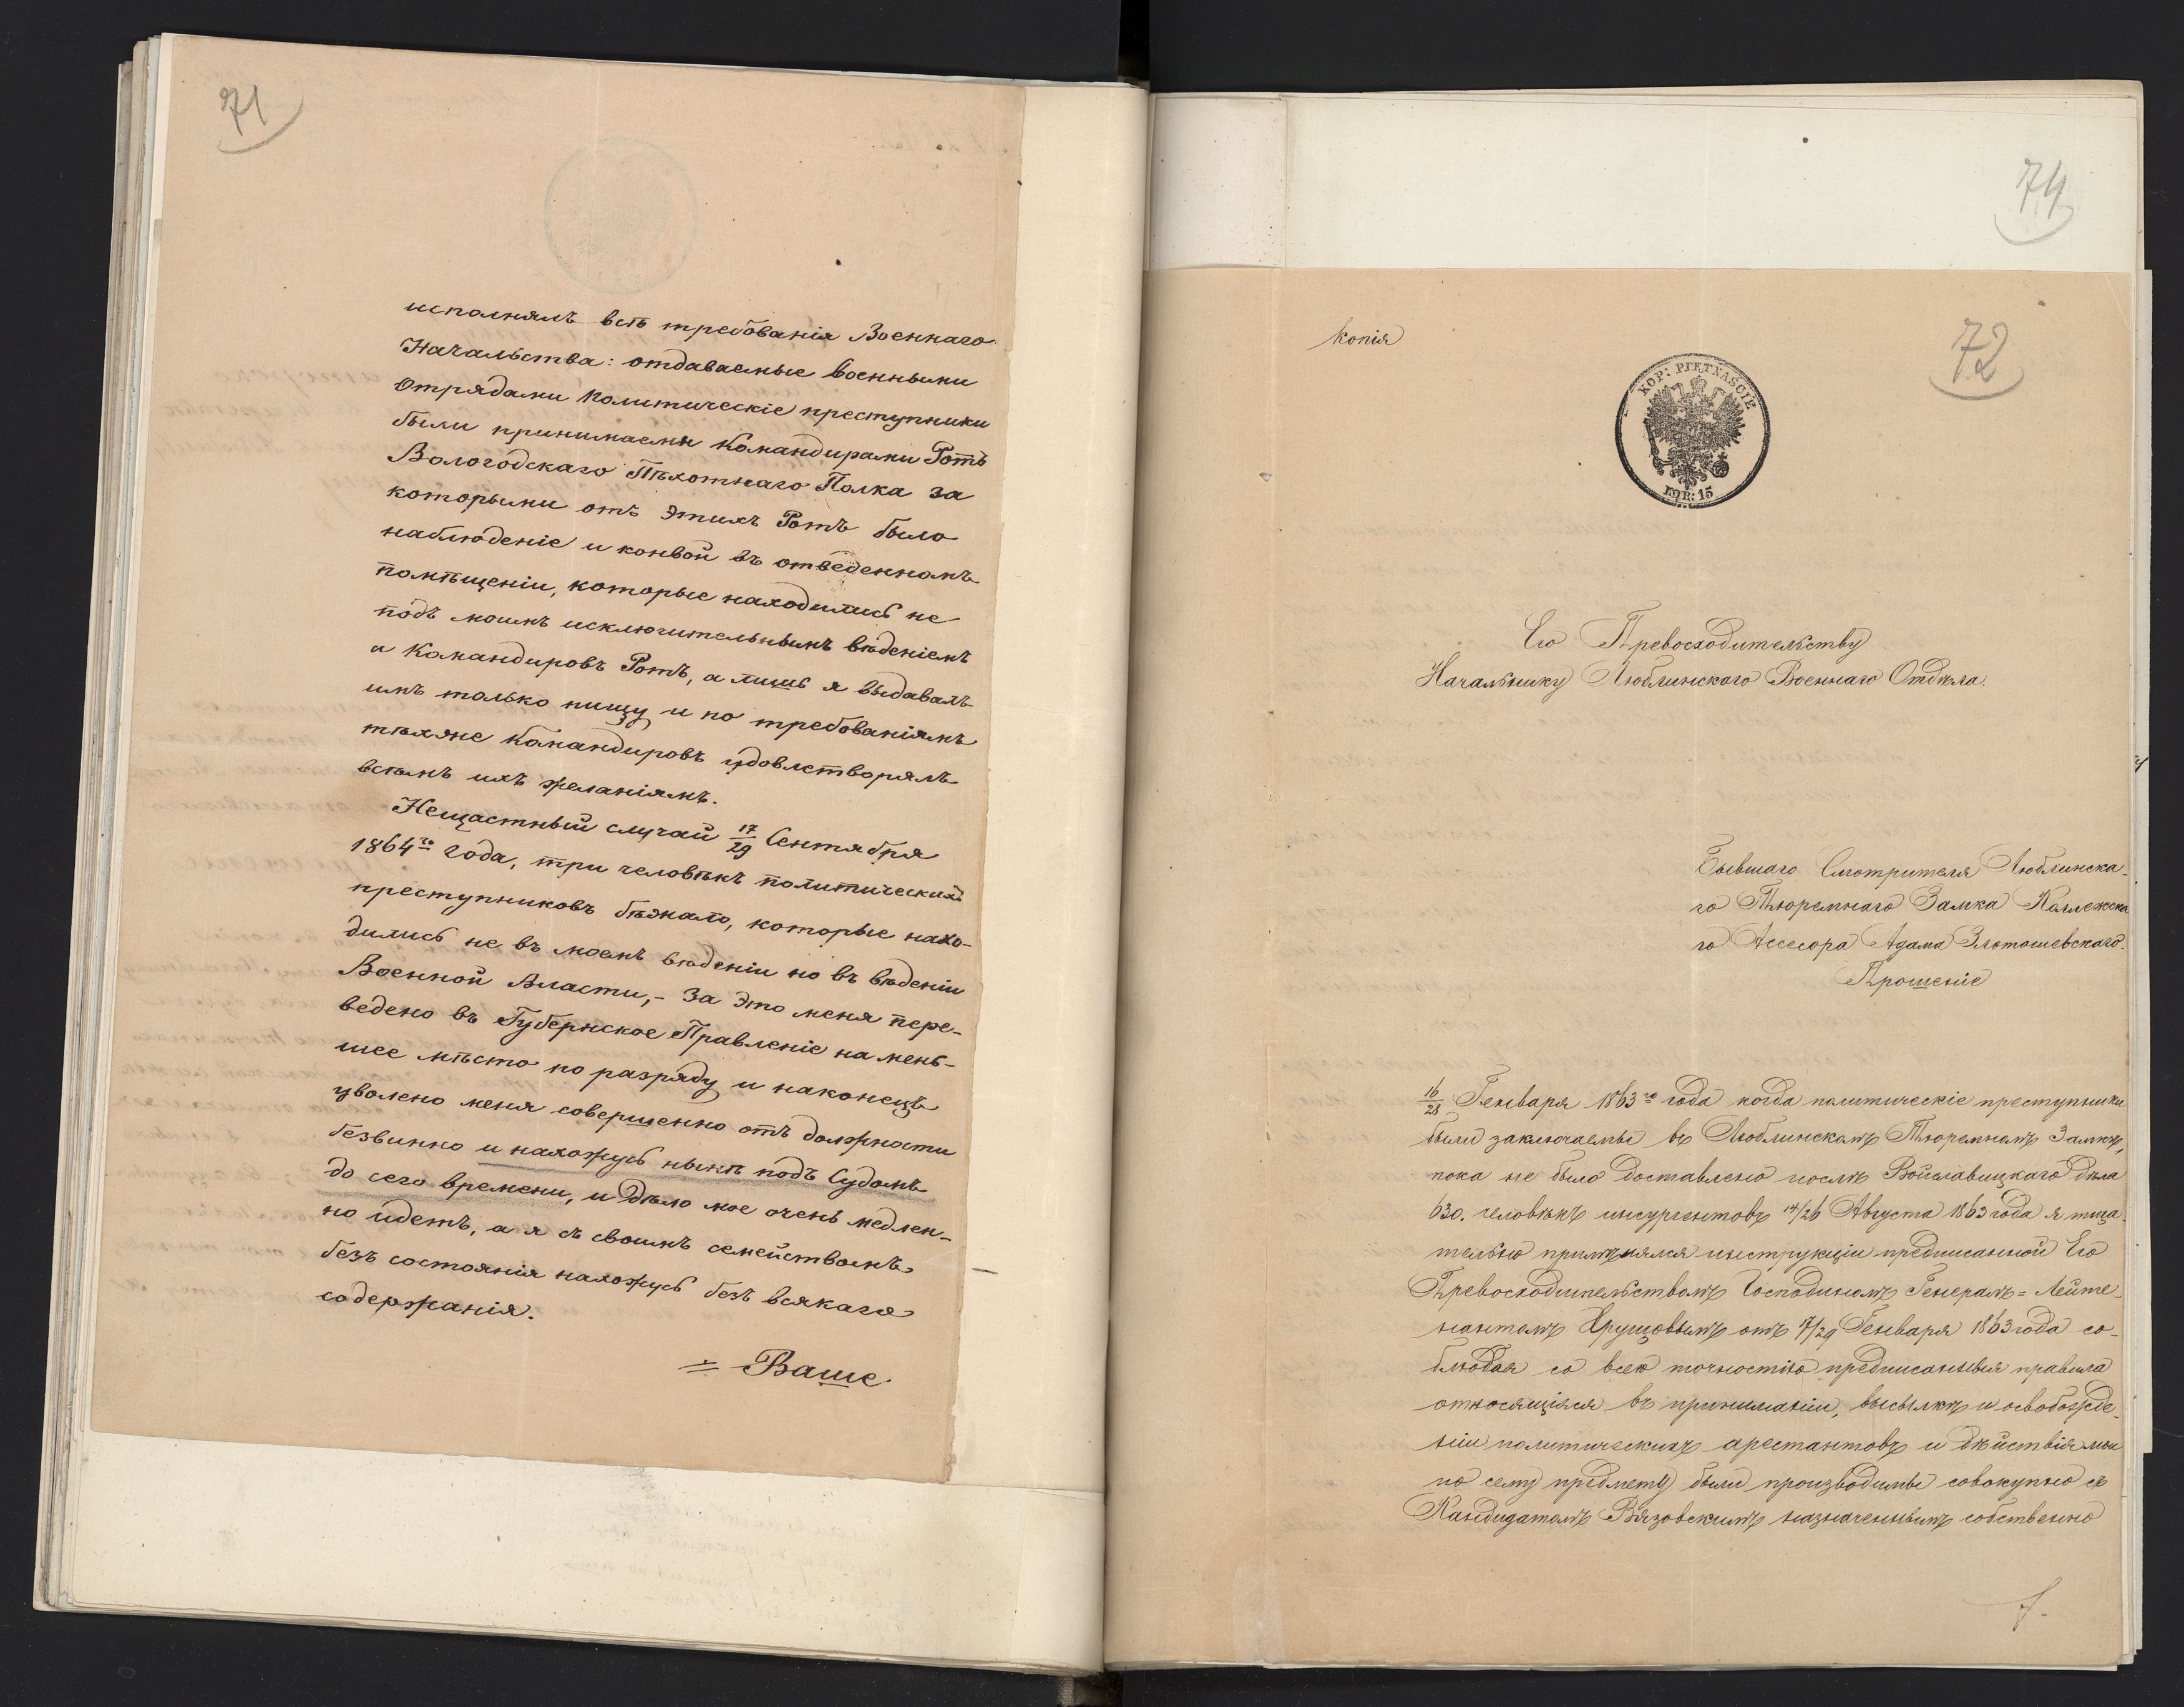 71
исполнялъ всѣ требованія Военнаго
Начальства: отдаваемые военными
Отрядами политическіе преступники
были принимаемы Командирами Ротъ
Вологодскаго Пѣхотнаго Полка за
которыми отъ этихъ Ротъ было
наблюденіе и конвой въ отведенномъ
помѣщеніи, которые находились не
подъ моимъ исключительнымъ вѣденіемъ
а Командировъ Ротъ, а лишь я выдавалъ
имъ только пищу и по требованіямъ
тѣхже Командировъ удовлетворялъ
всѣмъ ихъ желаніямъ.
Нещастный случай 17/29 Сентября
1864го года, три человѣкъ политическихъ
преступниковъ бѣжало, которые нахо-
дились не въ моемъ вѣденіи но въ вѣденіи
Военной Власти, - За это меня пере-
ведено въ Губернское Правленіе на мень-
шее мѣсто по разряду и наконецъ
уволено меня совершенно отъ должности
безвинно и нахожусь нынѣ подъ Судомъ
до сего времени, и Дѣло мое очень медлен-
но идетъ, а я съ своимъ семействомъ
безъ состоянія нахожусь безъ всякаго
содержанія.
= Ваше
74
72
копія
KOP: PIĘTNAŚCIE
КОП: 15
Его Превосходительству
Начальнику Люблинскаго Военнаго Отдѣла.
Бывшаго Смотрителя Люблинска-
го Тюремнаго Замка Коллежска
го Ассесора Адама Злотошевскаго
Прошеніе
16/28 Генваря 1863го года когда политическіе преступники
были заключаемы въ Люблинскомъ Тюремномъ Замкѣ,
пока не было доставлено послѣ Войславицкаго дѣла
630. человѣкъ инсургентовъ 14/26 Августа 1863 года я тща-
тельно примѣнялся инструкціи предписанной Его
Превосходительствомъ Господиномъ Генералъ=Лейте-
нантомъ Хрущовымъ отъ 17/29 Генваря 1863 года со-
блюдая со всею точностію предписанныя правила
относящіяся въ приниманіи, высылкѣ и освобожде-
ніи политическихъ арестантовъ и дѣйствія мои
по сему предмету были производимы совокупно съ
Кандидатомъ Вязовскимъ назначеннымъ собственно